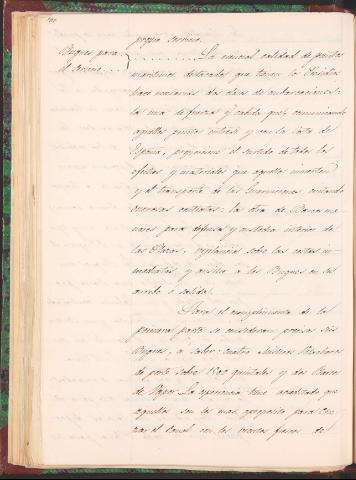 propio servicio.
Buques para
el servicio.
La esencial calidad de puntos
maritimos destacados que tienen los Presidios
hace necesarias dos clases de embarcaciones:
las unas de fuerza y cabida que, comunicando
aquellos puntos entre sí y con la Costa de
España, proporcionen el surtido de todos los
efectos y materiales que aquellos necesitan
y el transporte de las Guarniciones, evitando
onerosas contratas: la otra de Barcos me
nores para defensa y custodia interior de
las Plazas, vigilancia sobre las costas in
mediatas y auxilio a los Buques en su
arribo o salida.
Para el cumplimiento de la
primera parte se consideran precisos seis
Buques, a saber: cuatro Misticos
de porte sobre 1500 quintales y dos Barcos
de Vapor. La esperiencia tiene acreditado que
aquellos son los mas aproposito para Cru
zar el Canal con los vientos fuertes de